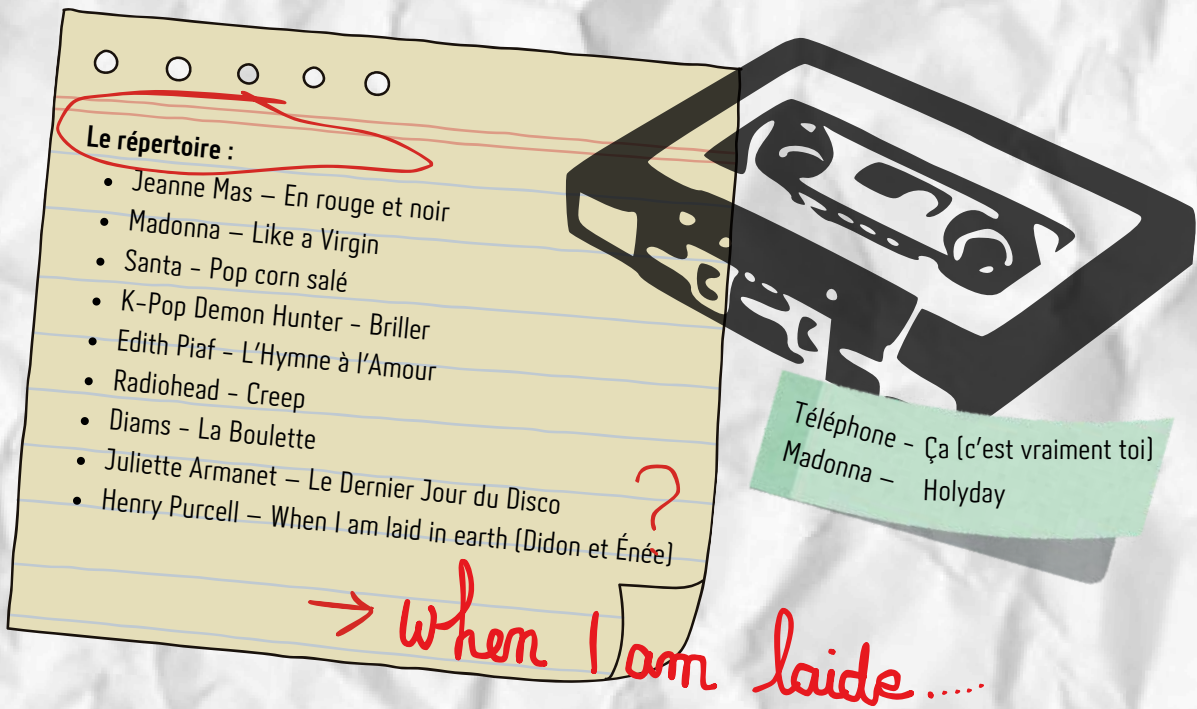 Le répertoire :
• Jeanne Mas – En rouge et noir
• Madonna – Like a Virgin
• Santa - Pop corn salé
• K-Pop Demon Hunter - Briller
• Edith Piaf - L'Hymne à l'Amour
• Radiohead - Creep
• Diams - La Boulette
• Juliette Armanet – Le Dernier Jour du Disco
• Henry Purcell – When I am laid in earth (Didon et Énée)
?
→ when I am laide.....
Téléphone - Ça (c'est vraiment toi)
Madonna – Holyday